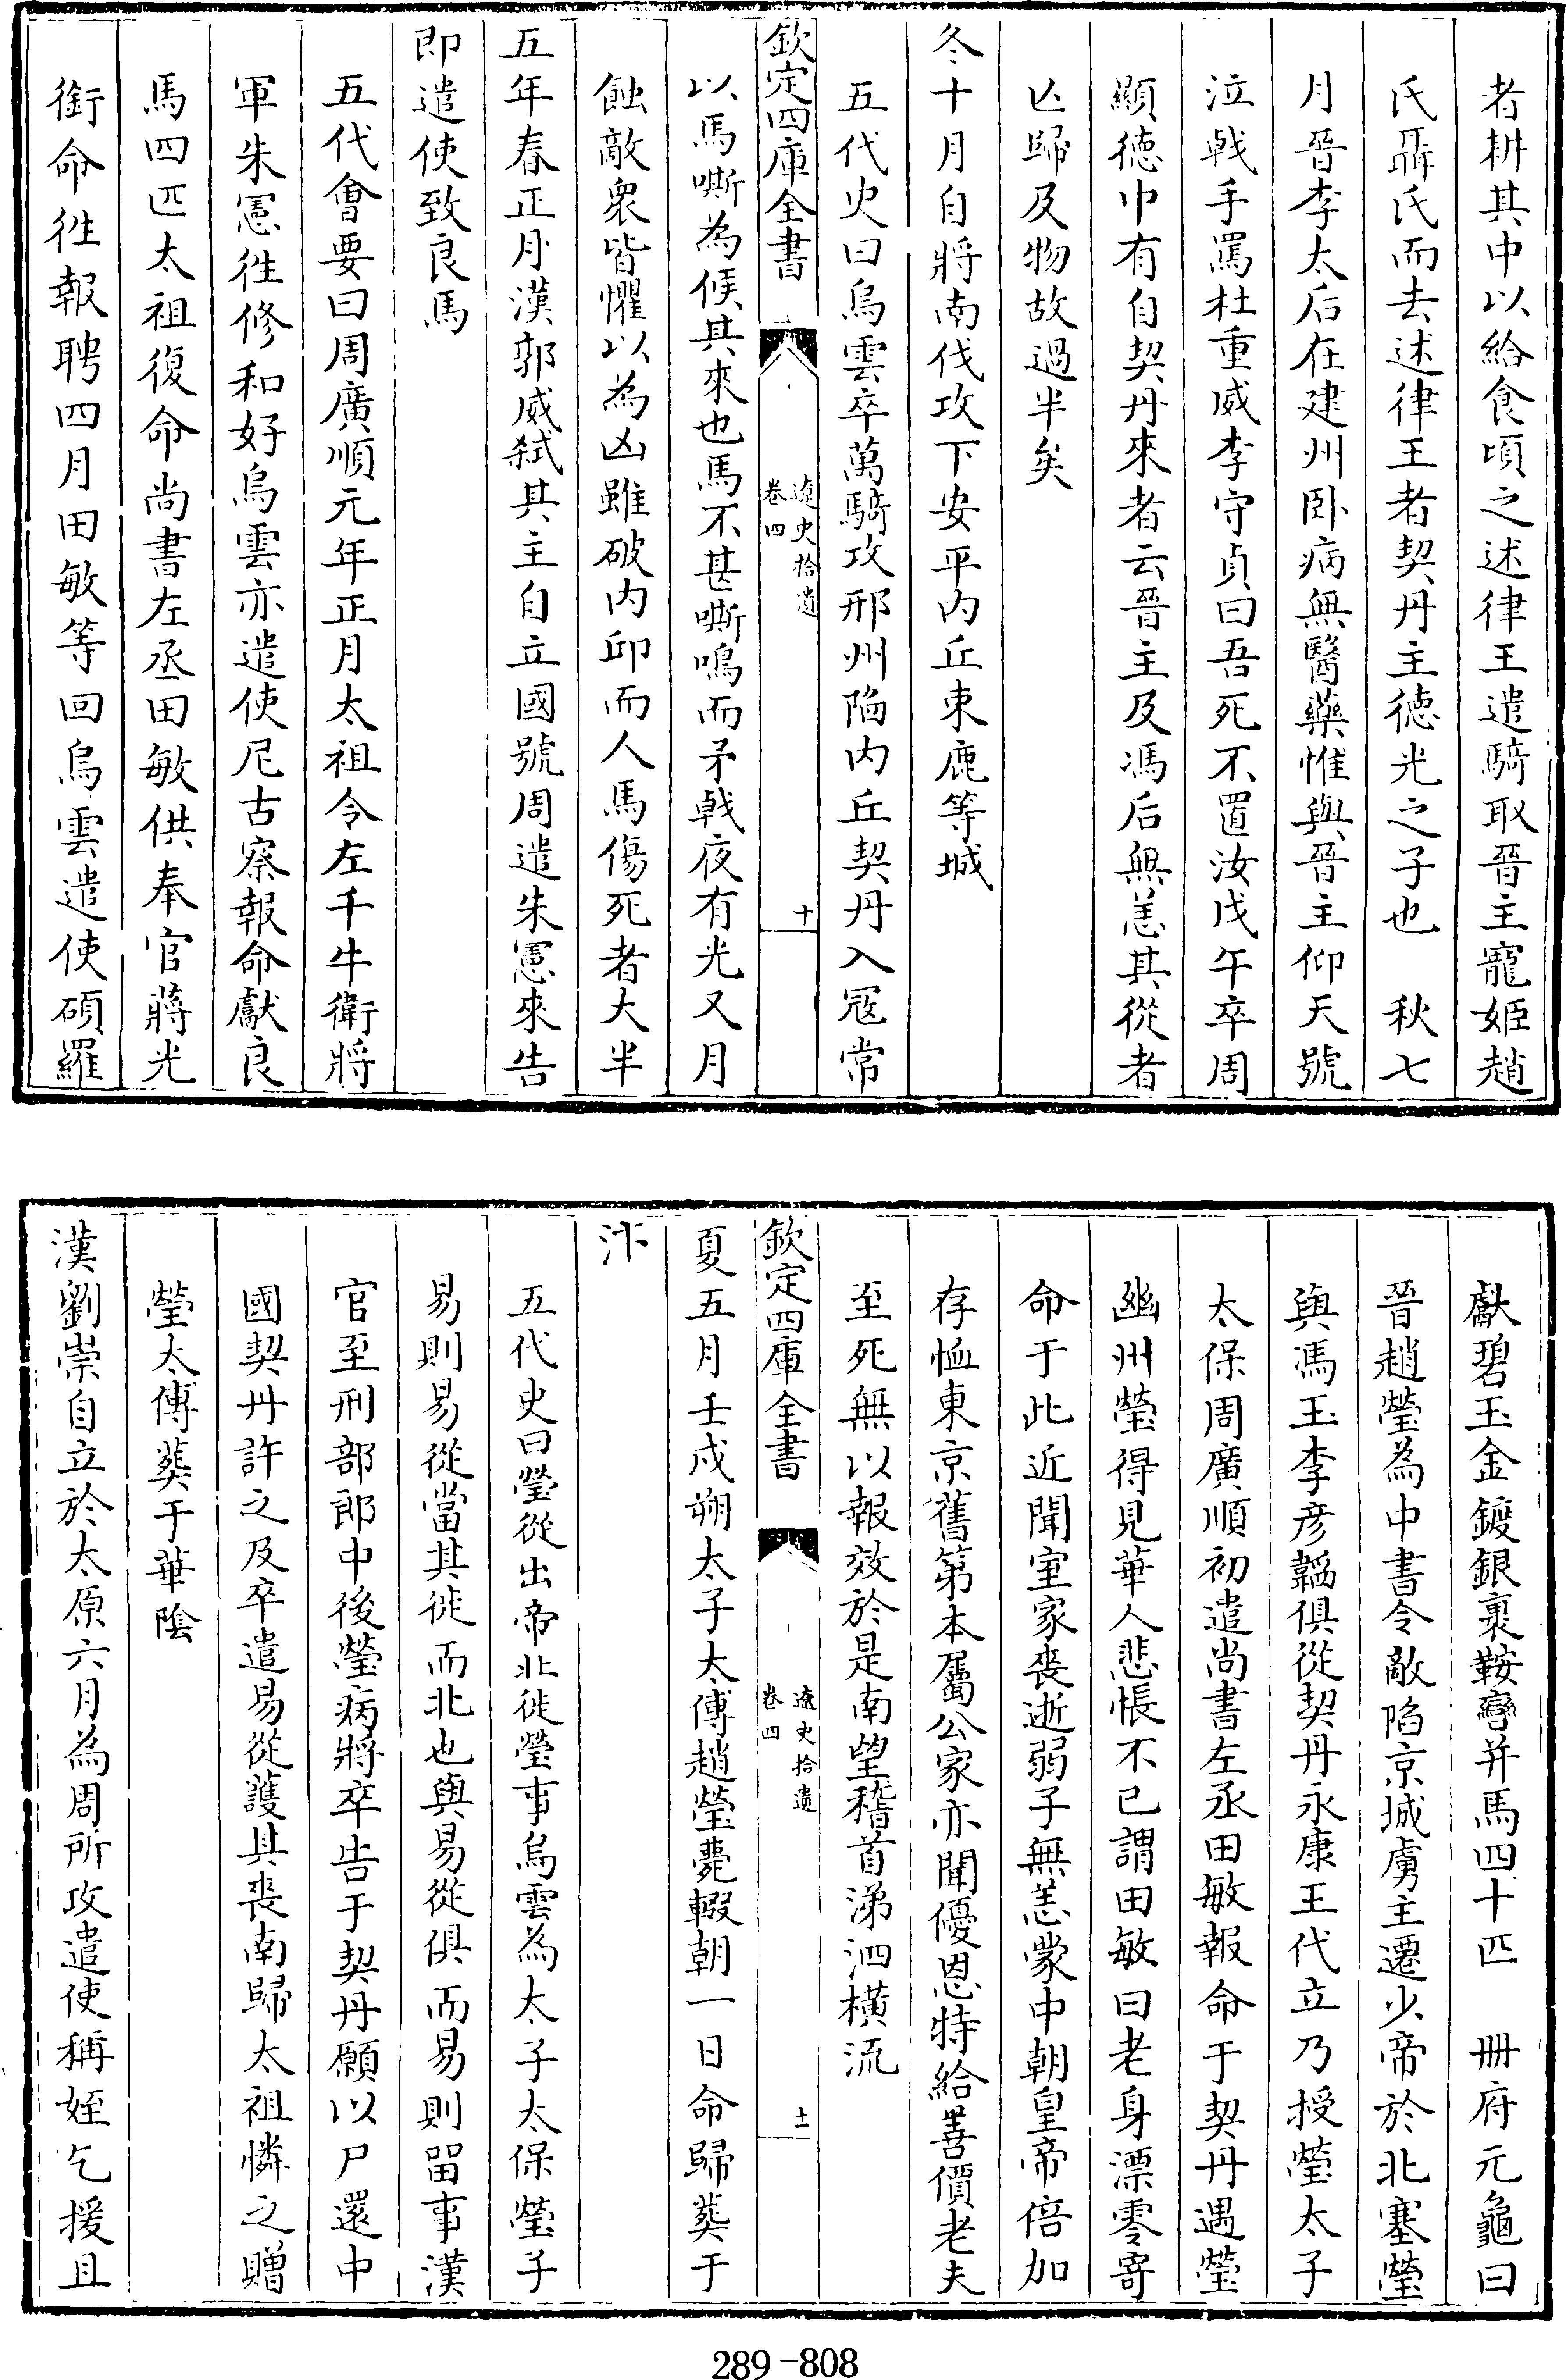 者耕其中以給食頃之述律王遣騎取晉主寵姬趙
氏聶氏而去述律王者契丹主徳光之子也　秋七
月晉李太后在建州卧病無醫藥惟與晉主仰天號
泣戟手罵杜重威李守貞曰吾死不置汝戊午卒周
顯徳中有自契丹來者云晉主及馮后無恙其從者
亾歸及物故過半矣
冬十月自將南伐攻下安平内丘束鹿等城
五代史曰烏雲卒萬騎攻邢州陷内丘契丹入冦常
欽定四庫全書
遼史拾遺
卷四
十
以馬嘶為候其來也馬不甚嘶鳴而矛戟夜有光又月
蝕敵衆皆懼以為凶雖破内邱而人馬傷死者大半
五年春正月漢郭威弑其主自立國號周遣朱憲來告
即遣使致良馬
五代會要曰周廣順元年正月太祖令左千牛衛將
軍朱憲徃修和好烏雲亦遣使尼古察報命獻良
馬四匹太祖復命尚書左丞田敏供奉官蔣光
銜命徃報聘四月田敏等回烏雲遣使碩羅
獻碧玉金鍍銀裏鞍轡并馬四十匹　冊府元龜曰
晉趙瑩為中書令敵陷京城虜主遷少帝於北塞瑩
與馮玉李彦韜俱從契丹永康王代立乃授瑩太子
太保周廣順初遣尚書左丞田敏報命于契丹遇瑩
幽州瑩得見華人悲悵不已謂田敏曰老身漂零寄
命于此近聞室家喪逝弱子無恙蒙中朝皇帝倍加
存恤東京舊第本屬公家亦聞優恩特給善價老夫
至死無以報效於是南望稽首涕泗橫流
欽定四庫全書
遼史拾遺
卷四
十一
夏五月壬戌朔太子太傅趙瑩薨輟朝一日命歸葬于
汴
五代史曰瑩從出帝北徙瑩事烏雲為太子太保瑩子
易則易從當其徙而北也與易從俱而易則留事漢
官至刑部郎中後瑩病將卒告于契丹願以尸還中
國契丹許之及卒遣易從護其喪南歸太祖憐之贈
瑩太傅葬于華陰
漢劉崇自立於太原六月為周所攻遣使稱姪乞援且
289-808